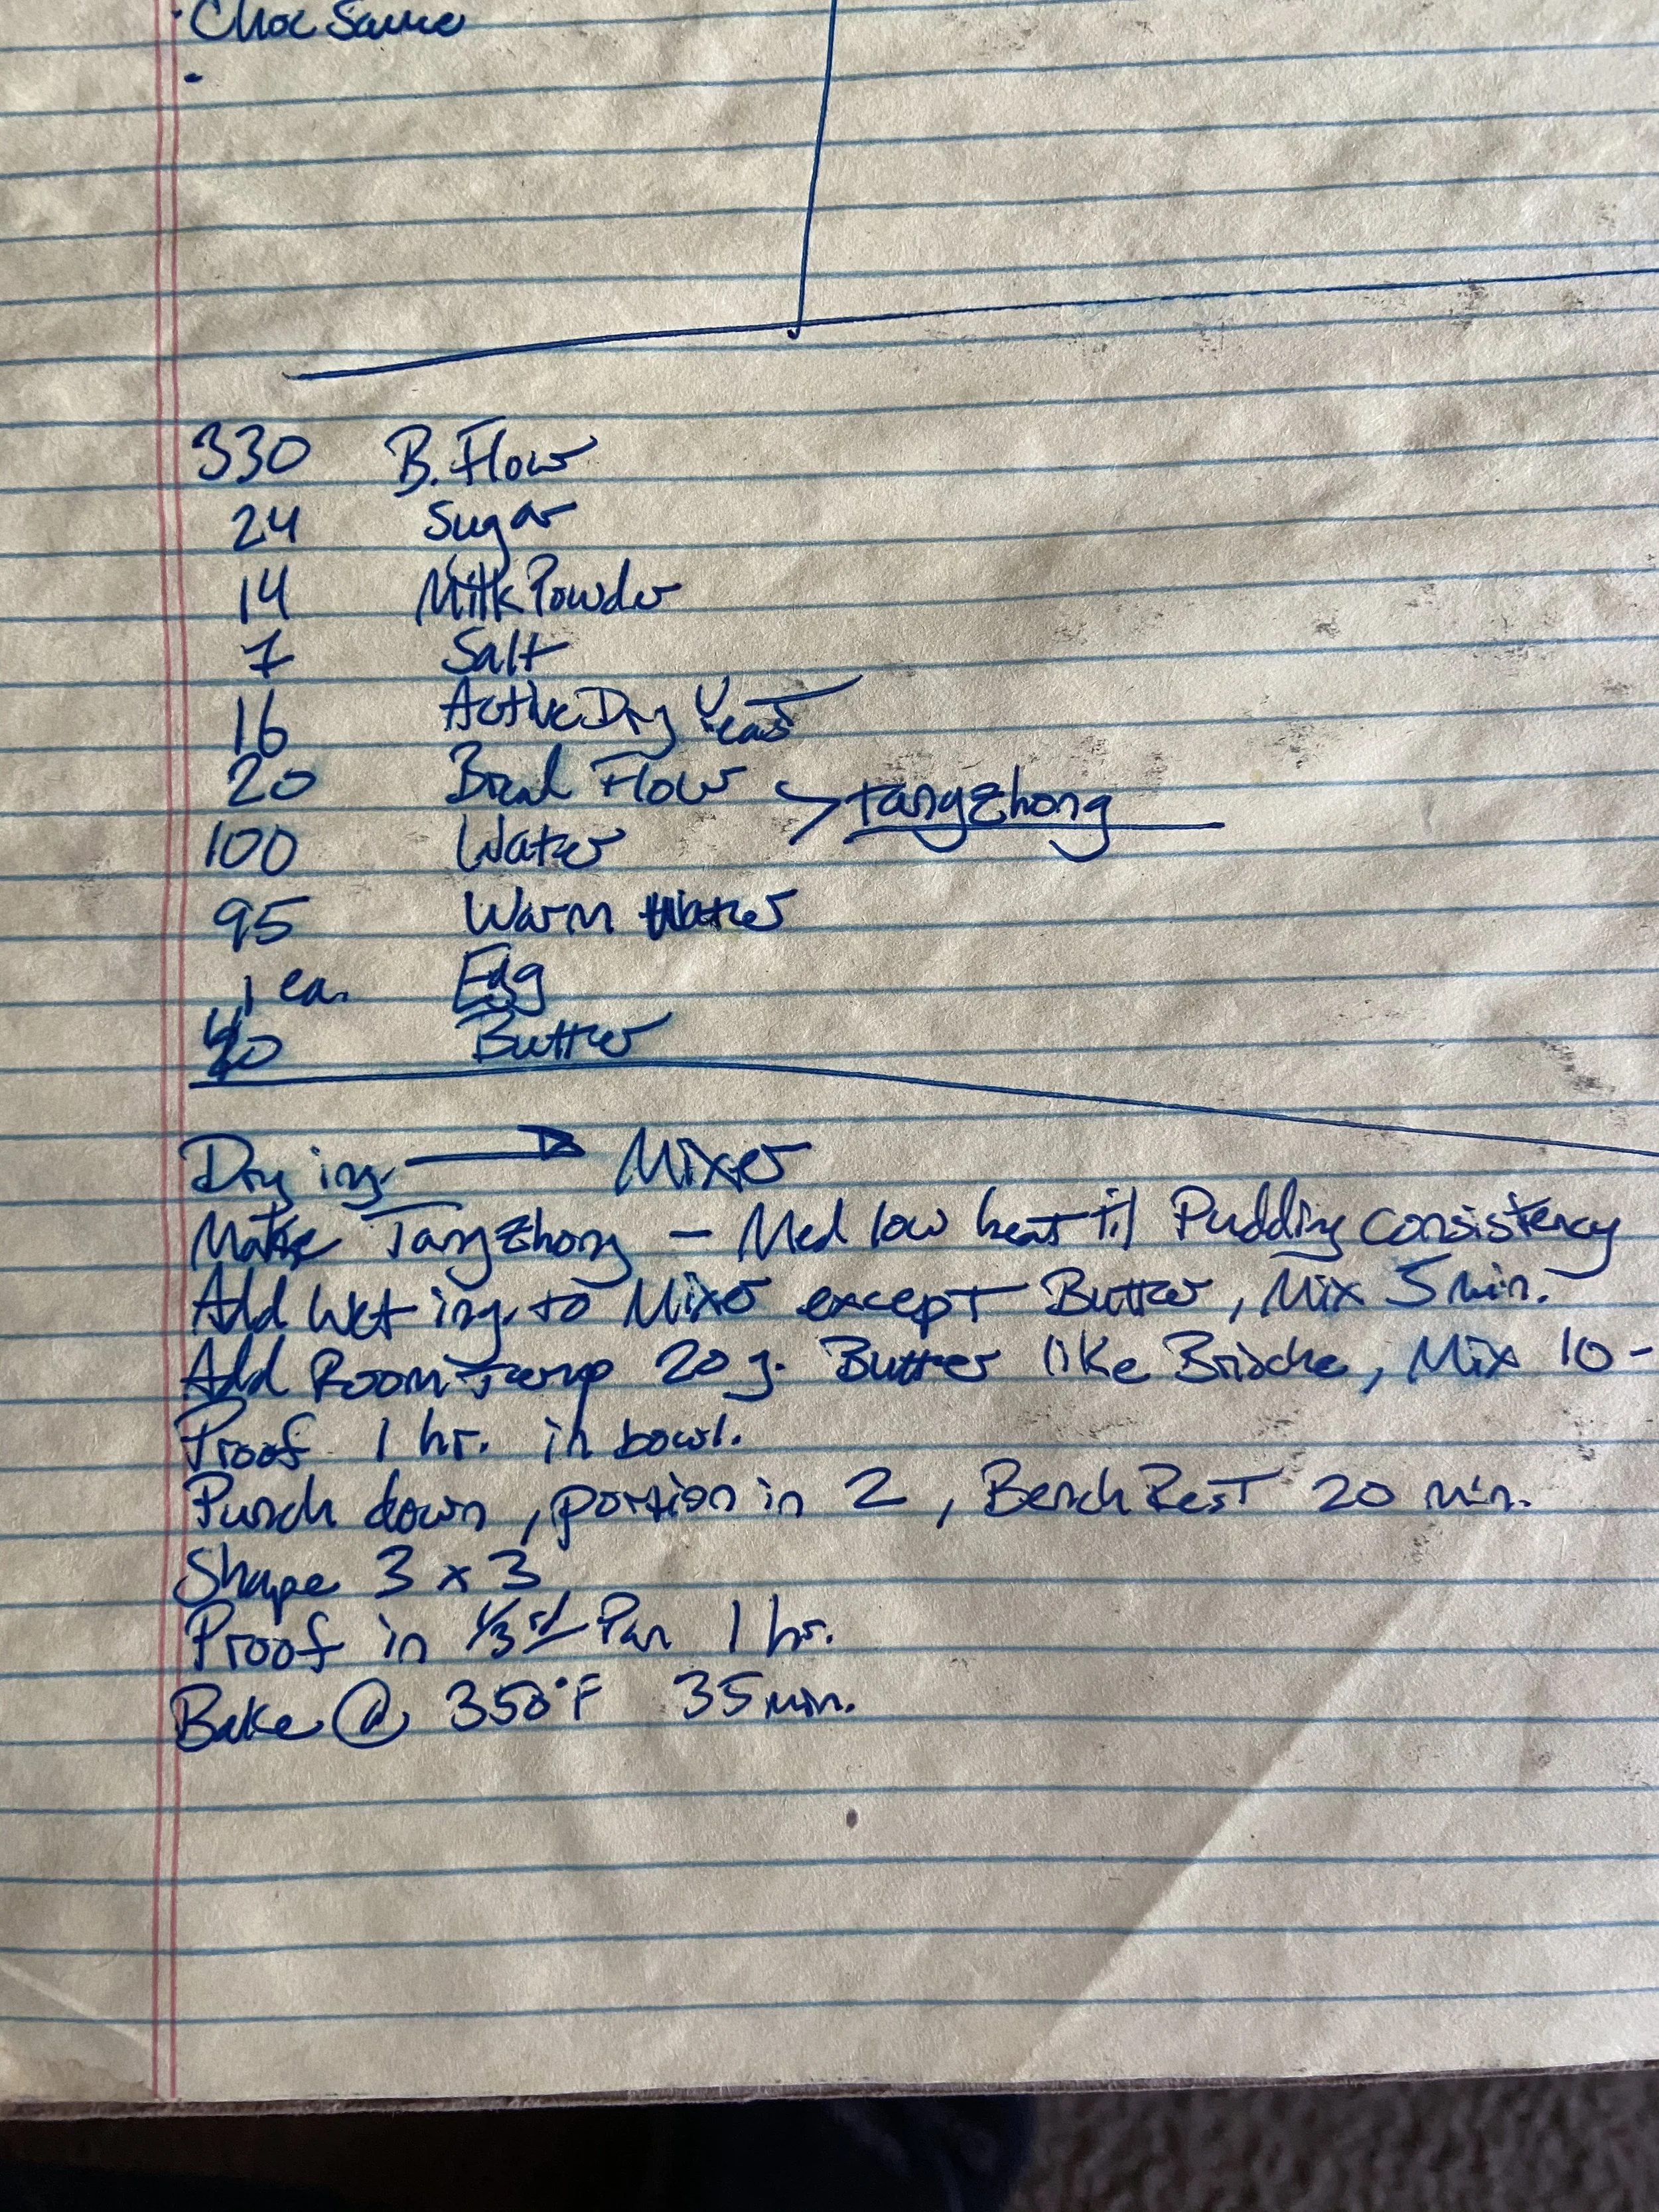 · Choc Sauce
·
330 B. Flour
24 Sugar
14 Milk Powder
7 Salt
16 Active Dry Yeast
20 Bread Flour > tangzhong
100 Water
95 Warm Water
1 ea. Egg
Butter
Dry ing. → Mixer
Make Tangzhong - Med low heat til Pudding consistency
Add Wet ing. to Mixer except Butter, Mix 5 min.
Add Room Temp 20 g. Butter like Brioche, Mix 10-
Proof 1 hr. in bowl.
Punch down, portion in 2, Bench Rest 20 min.
Shape 3 x 3
Proof in 1/3rd Pan 1 hr.
Bake @ 350°F 35 min.